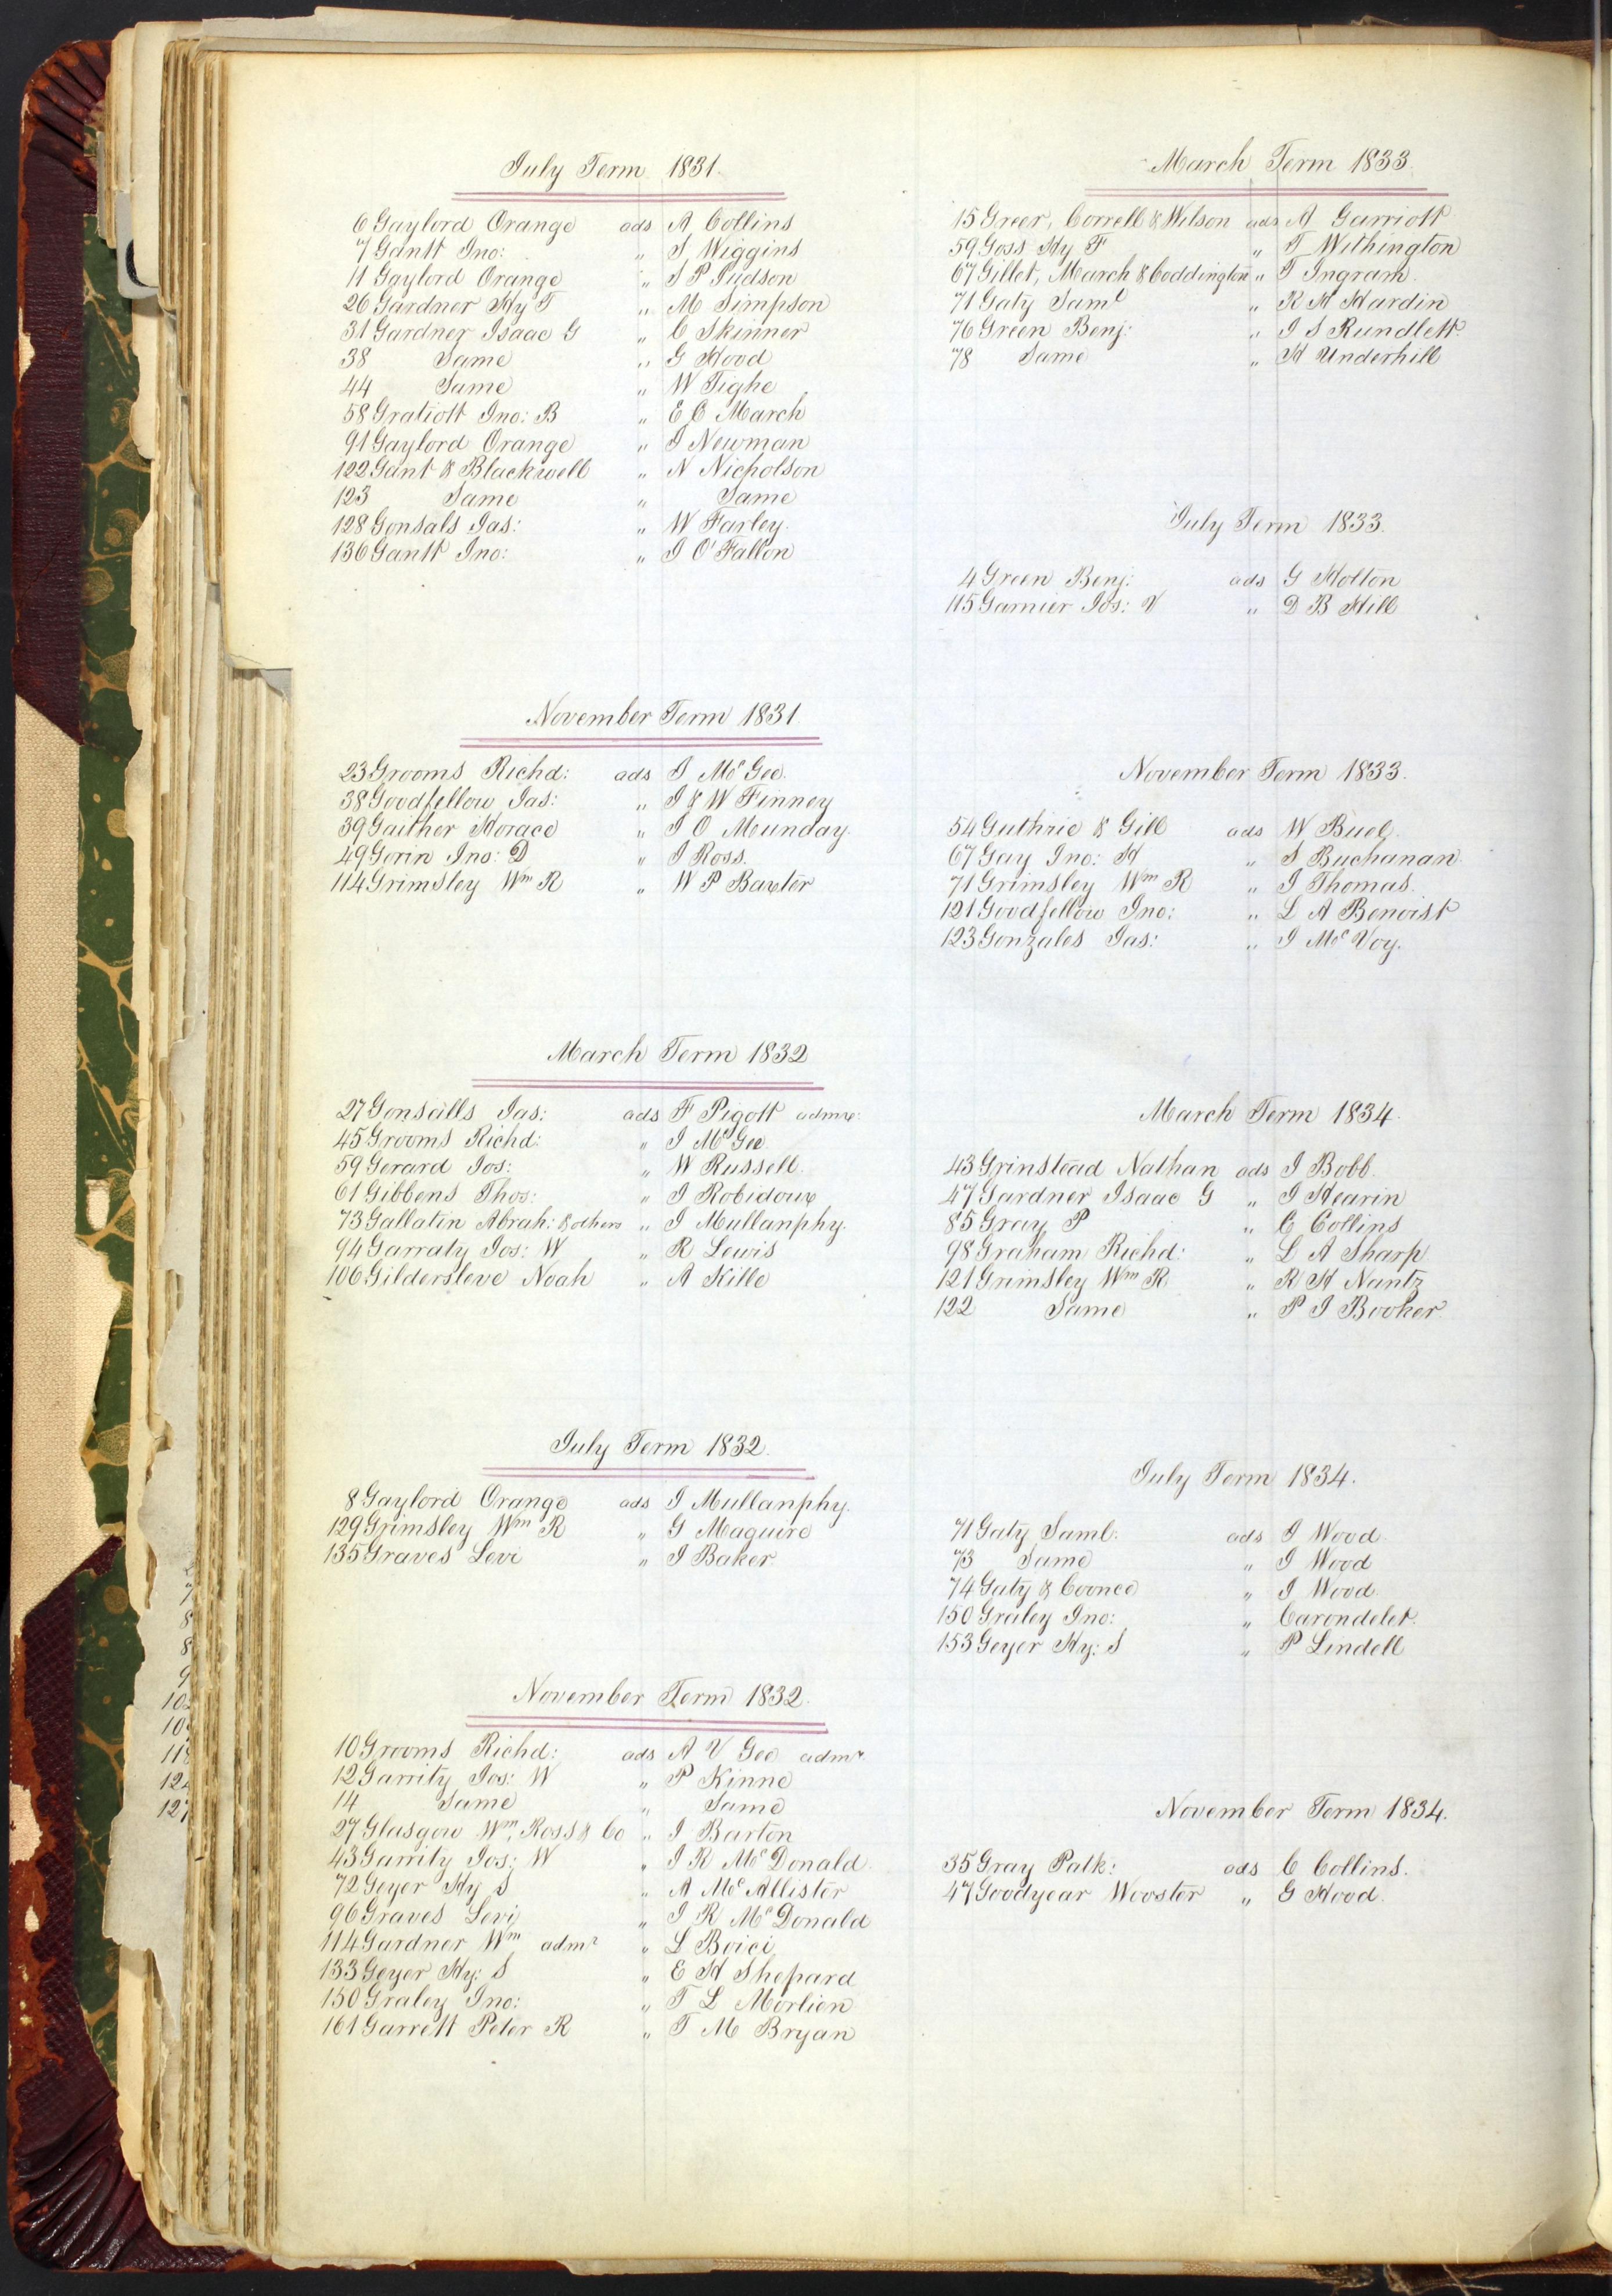 July Term 1831.
6 Gaylord Orange ads A Collins
7 Gantt Jno: " S Wiggins
11 Gaylord Orange " S P Judson
26 Gardner Hy T " M Simpson
31 Gardner Isaac G " C Skinner
38 Same " G Hood
44 Same " W Tighe
58 Gratiott Jno: B " E C March
91 Gaylord Orange " I Newman
122 Gant & Blackwell " N Nicholson
123 Same " Same
128 Gonsals Jas: " W Farley.
136 Gantt Jno: " J O'Fallon
November Term 1831.
23 Grooms Richd: ads J McGee.
38 Goodfellow Jas: " J & W Finney
39 Gaither Horace " J O Munday.
49 Gorin Jno: D " J Ross.
114 Grimsley Wm R " W P Baxter
March Term 1832
27 Gonsalls Jas: ads F Pigott admx:
45 Grooms Richd: " J McGee
59 Gerard Jos: " W Russell.
61 Gibbens Thos: " J Robidoux
73 Gallatin Abrah: & others " J Mullanphy.
94 Garraty Jos: W " R Lewis
106 Gildersleve Noah " A Kille
July Term 1832.
8 Gaylord Orange ads J Mullanphy.
129 Grimsley Wm R " G Maguire
135 Graves Levi " J Baker.
November Term 1832.
10 Grooms Richd: ads A V Gee admr.
12 Garrity Jos: W " P Kinne
14 Same " Same
27 Glasgow Wm, Ross & Co " J Barton
43 Garrity Jos: W " J R McDonald.
72 Geyer Hy S " A McAllister
96 Graves Levi " J R McDonald
114 Gardner Wm admr " L Boici
133 Geyer Hy: S " E H Shepard
150 Graley Jno: " T L Morlien
161 Garrett Peter R " T M Bryan
March Term 1833.
15 Greer, Correll & Wilson ads A Garriott
59 Goss Hy F " T Withington
67 Gillet, March & Coddington " T Ingram.
71 Gaty Saml " R H Hardin
76 Green Benj: " J S Rundlett.
78 Same " H Underhill
July Term 1833.
4 Green Benj: ads G Holton
115 Garnier Jos: V " D B Hill
November Term 1833.
54 Guthrie & Gill ads W Buel.
67 Gay Jno: H " S Buchanan.
71 Grimsley Wm R " J Thomas.
121 Goodfellow Jno: " L A Benoist
123 Gonzales Jas: " J McVoy.
March Term 1834.
43 Grinstead Nathan ads J Bobb.
47 Gardner Isaac G " J Hearin
85 Gray P " C Collins
98 Graham Richd: " L A Sharp
121 Grimsley Wm R " R H Nantz
122 Same " P J Booker.
July Term 1834.
71 Gaty Saml: ads J Wood
73 Same " J Wood
74 Gaty & Coonce " J Wood.
150 Graley Jno: " Carondelet.
153 Geyer Hy: S " P Lindell
November Term 1834.
35 Gray Patk: ads C Collins.
47 Goodyear Wooster " G Hood.